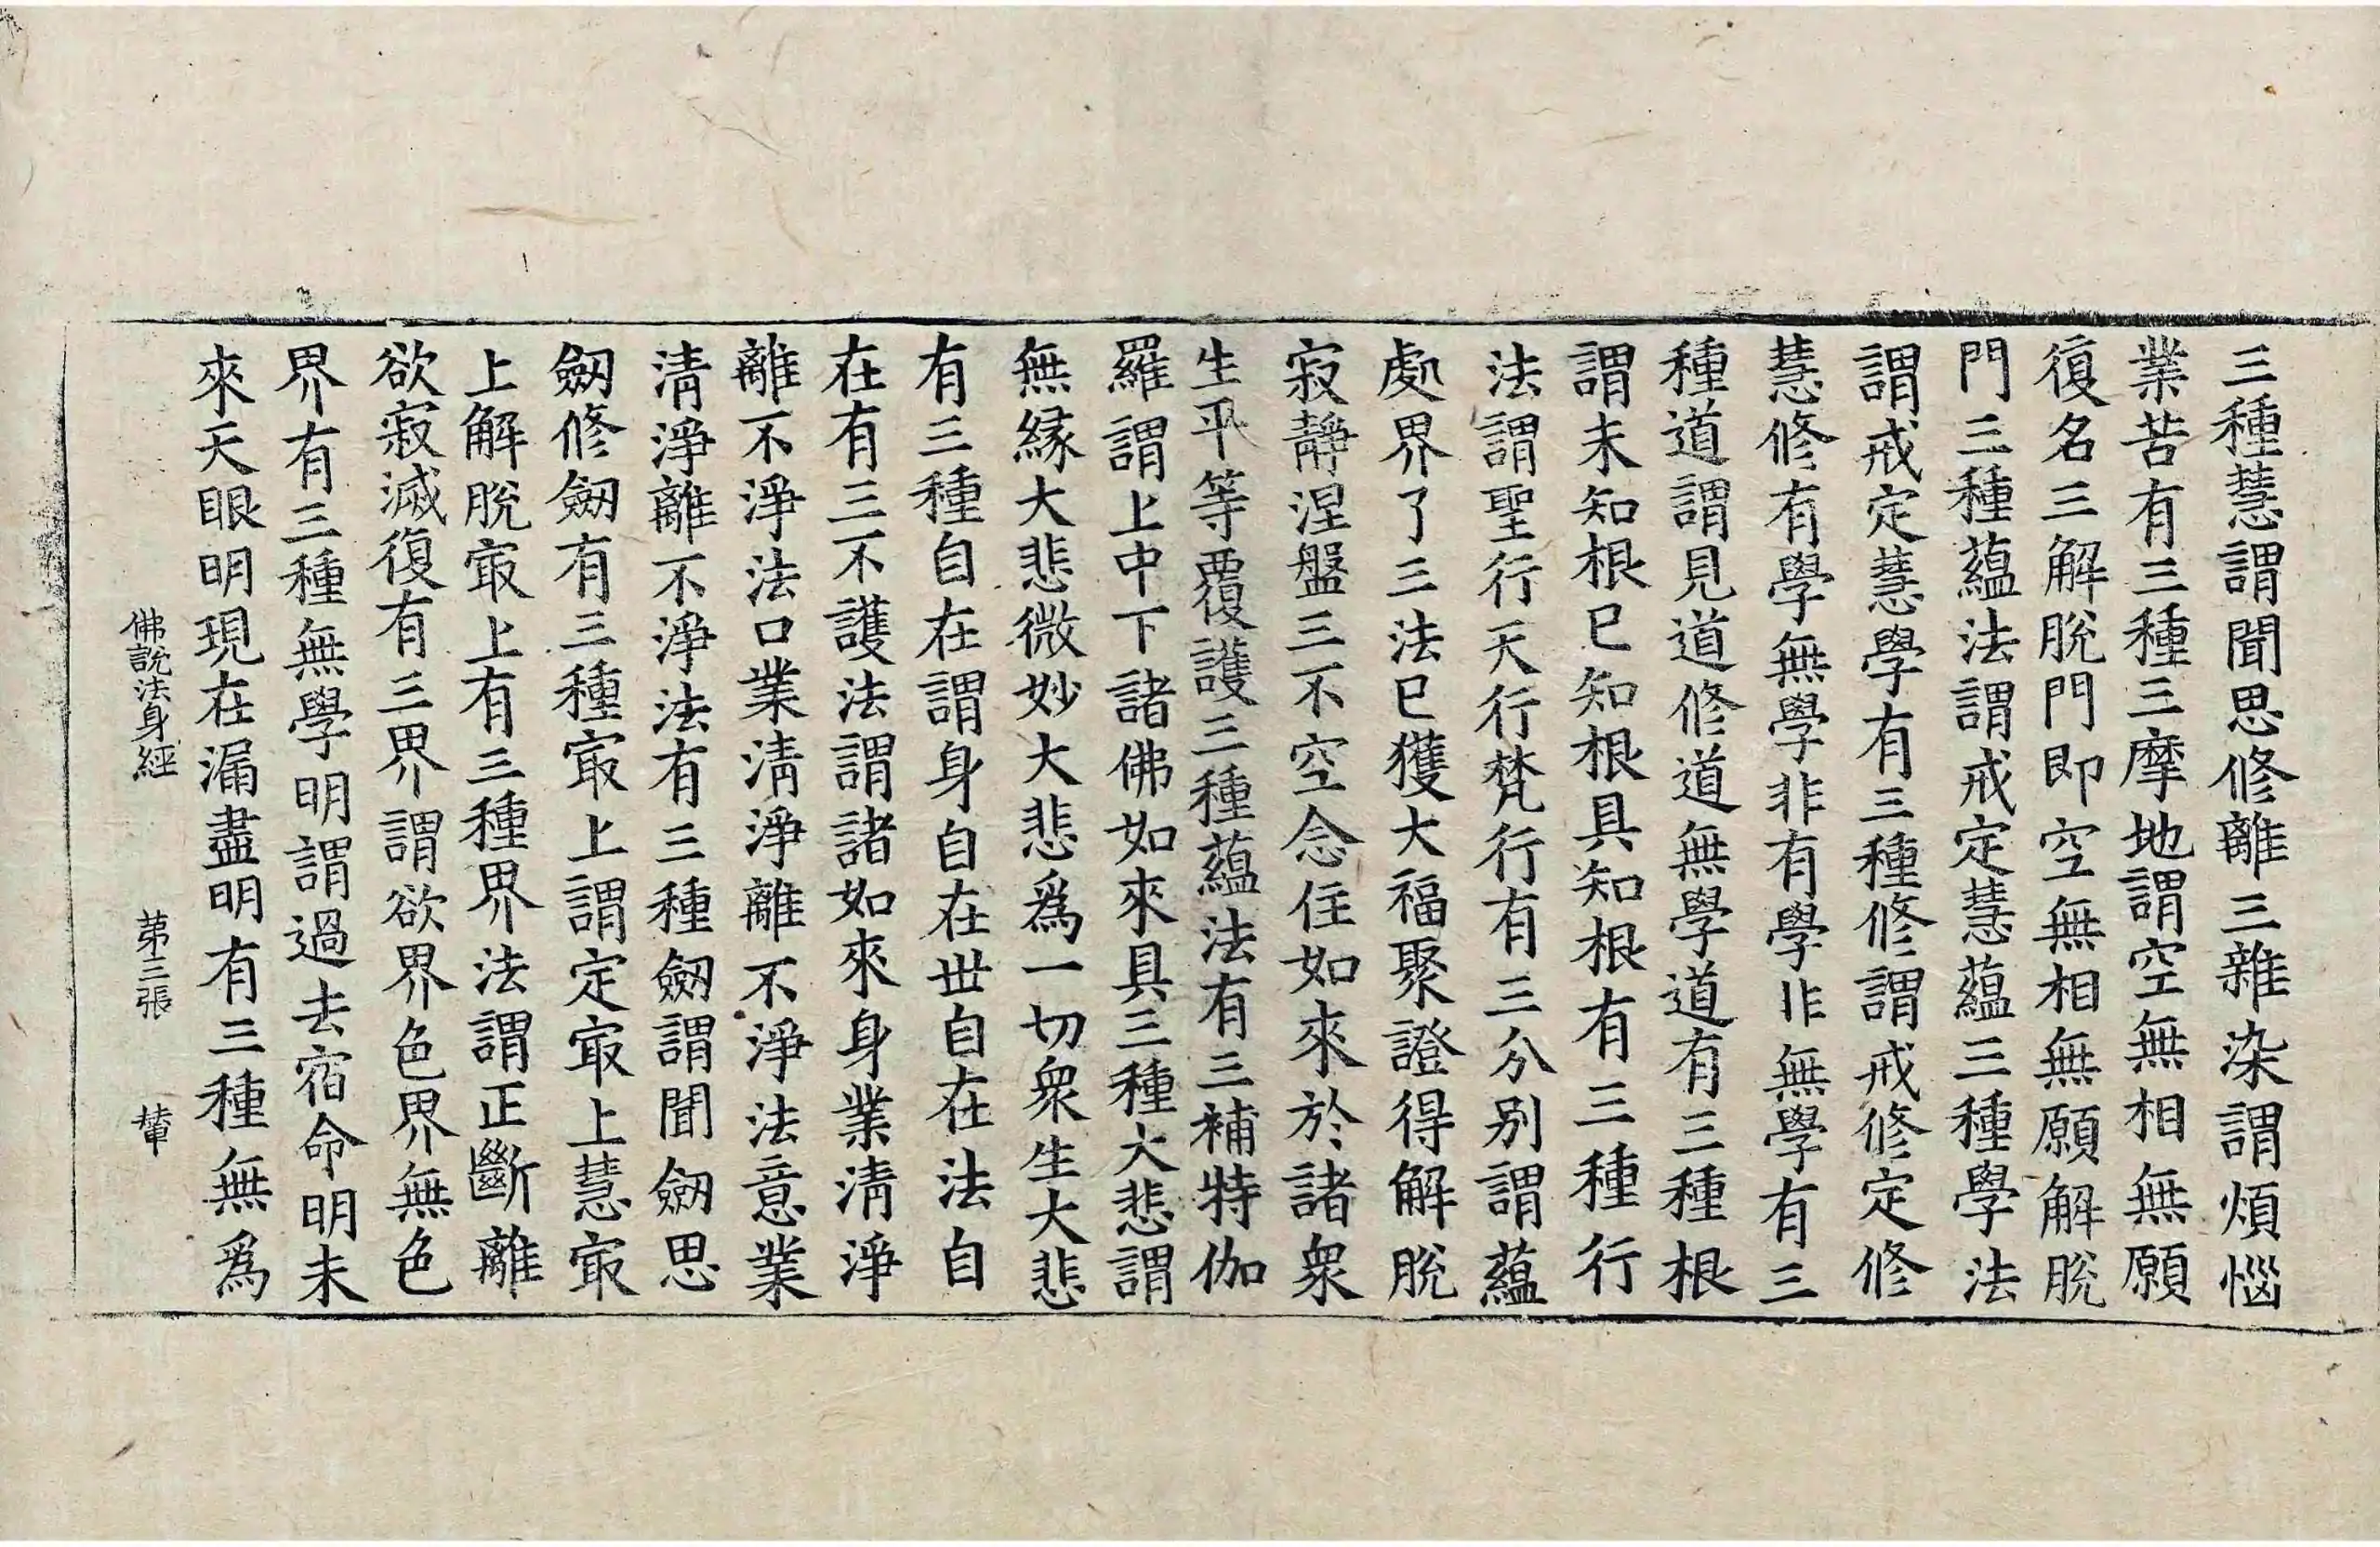 三種慧謂聞思修離三雜染謂煩惱
業苦有三種三摩地謂空無相無願
復名三解脫門即空無相無願解脫
門三種蘊法謂戒定慧蘊三種學法
謂戒定慧學有三種修謂戒修定修
慧修有學無學非有學非無學有三
種道謂見道修道無學道有三種根
謂未知根已知根具知根有三種行
法謂聖行天行梵行有三分別謂蘊
處界了三法已獲大福聚證得解脫
寂靜涅盤三不空念住如來於諸衆
生平等覆護三種蘊法有三補特伽
羅謂上中下諸佛如來具三種大悲謂
無緣大悲微妙大悲爲一切衆生大悲
有三種自在謂身自在世自在法自
在有三不護法謂諸如來身業清淨
離不淨法口業清淨離不淨法意業
清淨離不淨法有三種劒謂聞劒思
劒修劒有三種㝡上謂定㝡上慧㝡
上解脫㝡上有三種界法謂正斷離
欲寂滅復有三界謂欲界色界無色
界有三種無學明謂過去宿命明未
來天眼明現在漏盡明有三種無爲
佛說法身經 第三張 輦